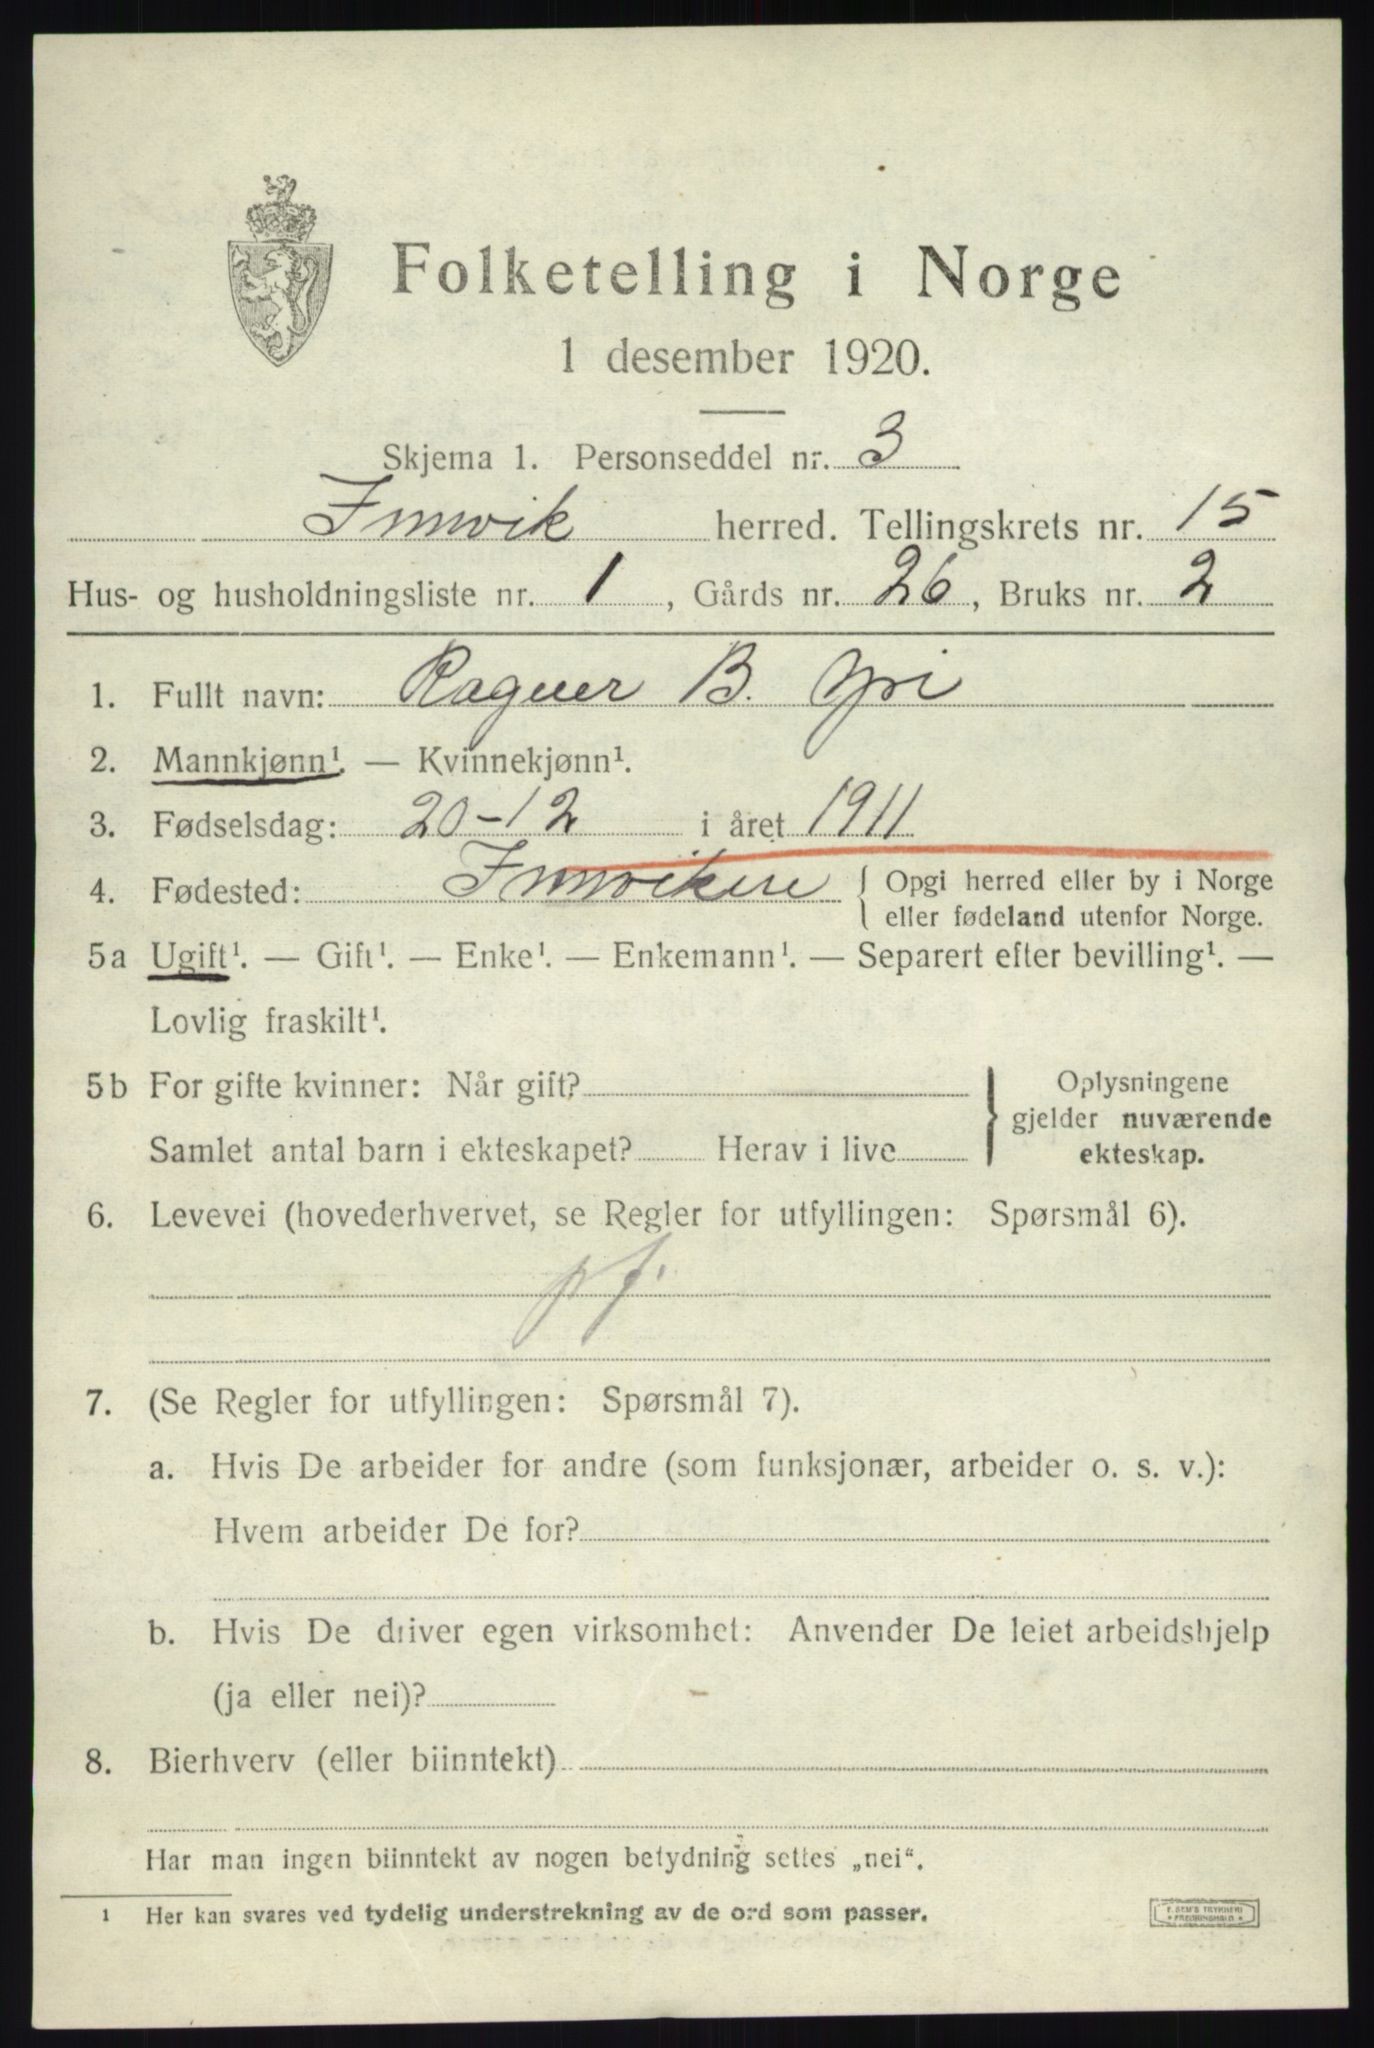 Folketelling i Norge
1 desember 1920.
Skjema 1. Personseddel nr. 3
Innvik herred. Tellingskrets nr. 15
Hus- og husholdningsliste nr. 1, Gårds nr. 26, Bruks nr. 2
1. Fullt navn: Ragner B. Yri
2. Mannkjønn¹. — Kvinnekjønn¹.
3. Fødselsdag: 20-12 i året 1911
4. Fødested: { Opgi herred eller by i Norge
eller fødeland utenfor Norge.
5a Ugift¹. — Gift¹. — Enke¹. — Enkemann¹. — Separert efter bevilling¹. —
Lovlig fraskilt¹.
5b For gifte kvinner: Når gift? } Oplysningene
gjelder nuværende
Samlet antal barn i ekteskapet? Herav i live ekteskap.
6. Levevei (hovederhvervet, se Regler for utfyllingen: Spørsmål 6).
7. (Se Regler for utfyllingen: Spørsmål 7).
a. Hvis De arbeider for andre (som funksjonær, arbeider o. s. v.):
Hvem arbeider De for?
b. Hvis De driver egen virksomhet: Anvender De leiet arbeidshjelp
(ja eller nei)?
8. Bierhverv (eller biinntekt)
Har man ingen biinntekt av nogen betydning settes „nei“.
1 Her kan svares ved tydelig understrekning av de ord som passer.
F. SEM'S TRYKKERI
• FREDRIKSHALD •